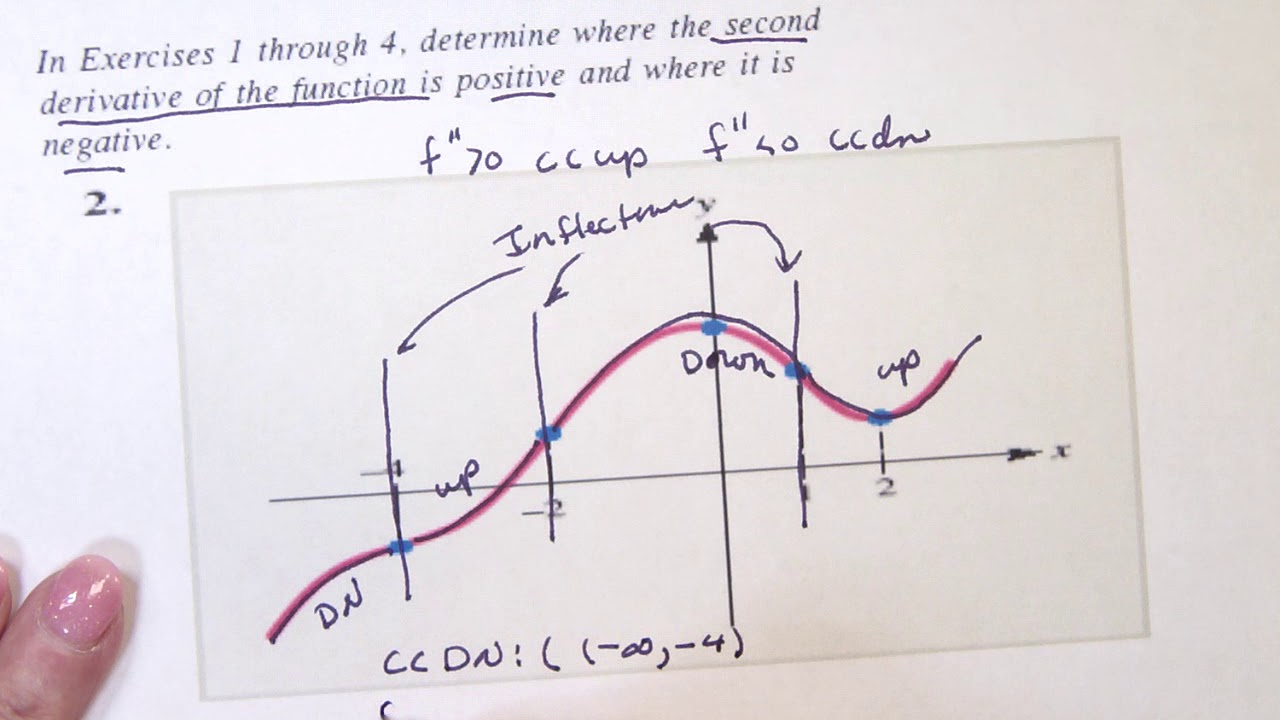 In Exercises 1 through 4, determine where the second
derivative of the function is positive and where it is
negative.
f''>0 CC up f''<0 CC dn
2.
Inflection
y
Down
up
x
up
-2
1
2
DN
CC DN: ( (-∞,-4)